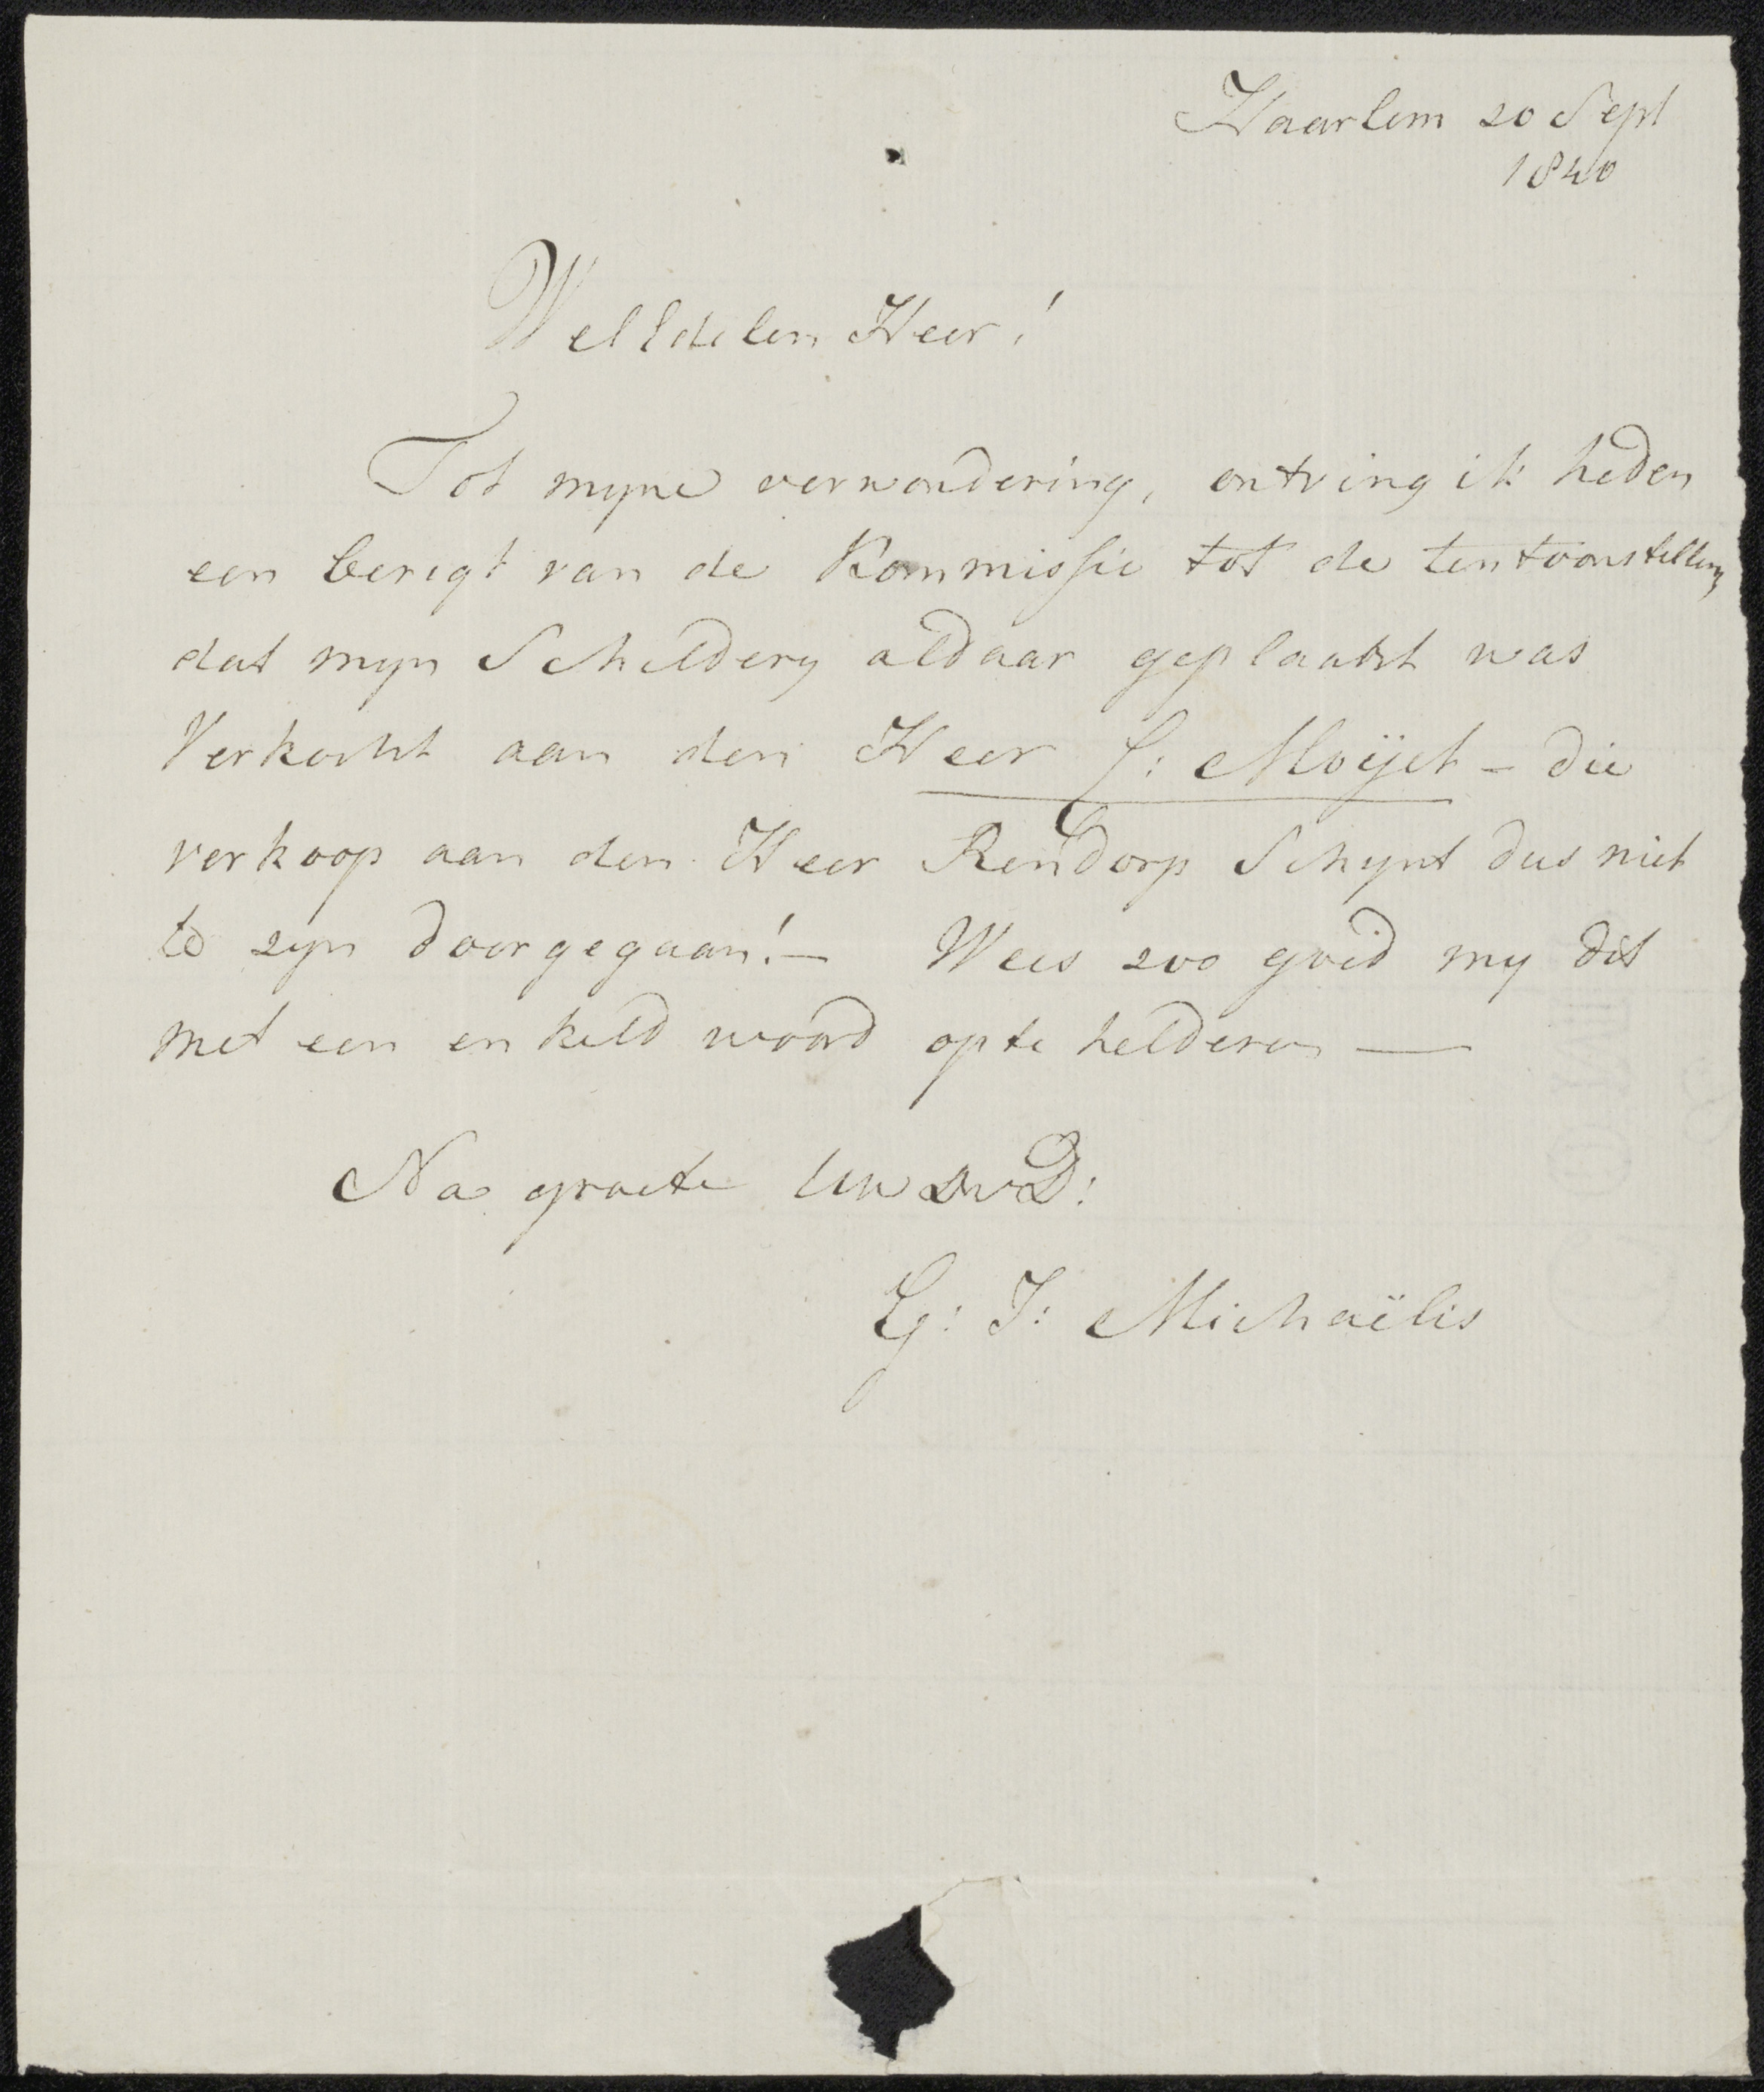 Haarlem 20 Sept
1840
WelEdelen Heer!
Tot myne verwondering, ontving ik heden
een berigt van de Kommissie tot de tentoonstelling
dat myn Schildery aldaar geplaatst was
Verkocht aan den Heer J: Moÿet - die
verkoop aan den Heer Rendorp Schynt dus niet
te zyn doorgegaan! — Wees zoo goed my dit
met een enkeld woord op te helderen —
Na groete Uw DwD:
G: J: Michaëlis